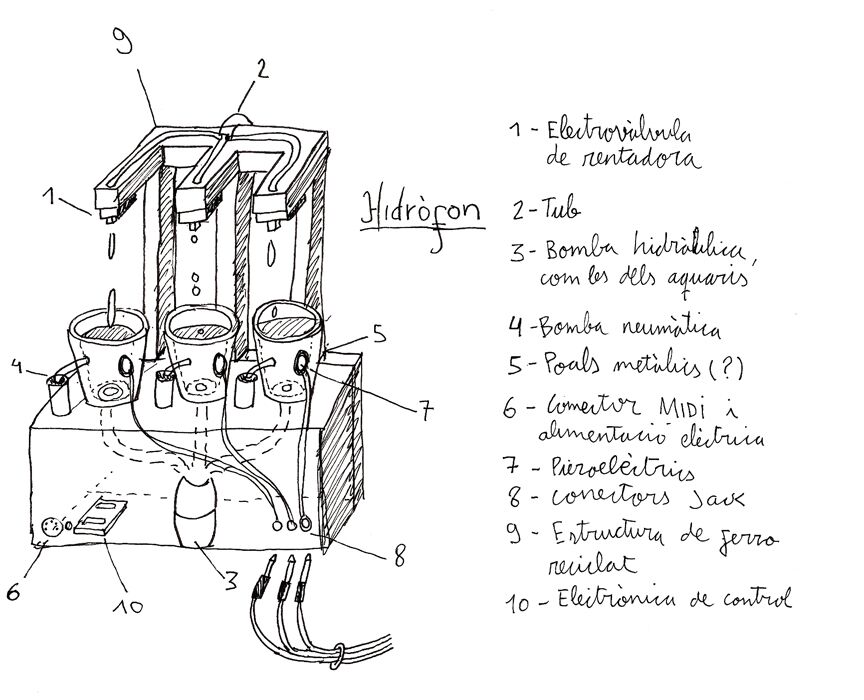 9
2
1
4
5
7
8
6
10
3
Hidròfon
1 - Electrovàlvula
de rentadora
2 - Tub
3 - Bomba hidràulica,
com les dels aquaris
4 - Bomba neumàtica
5 - Poals metàlics (?)
6 - Conector MIDI i
alimentació elèctrica
7 - Piezoelèctrics
8 - conectors Jack
9 - Estructura de ferro
reciclat
10 - Electrònica de control